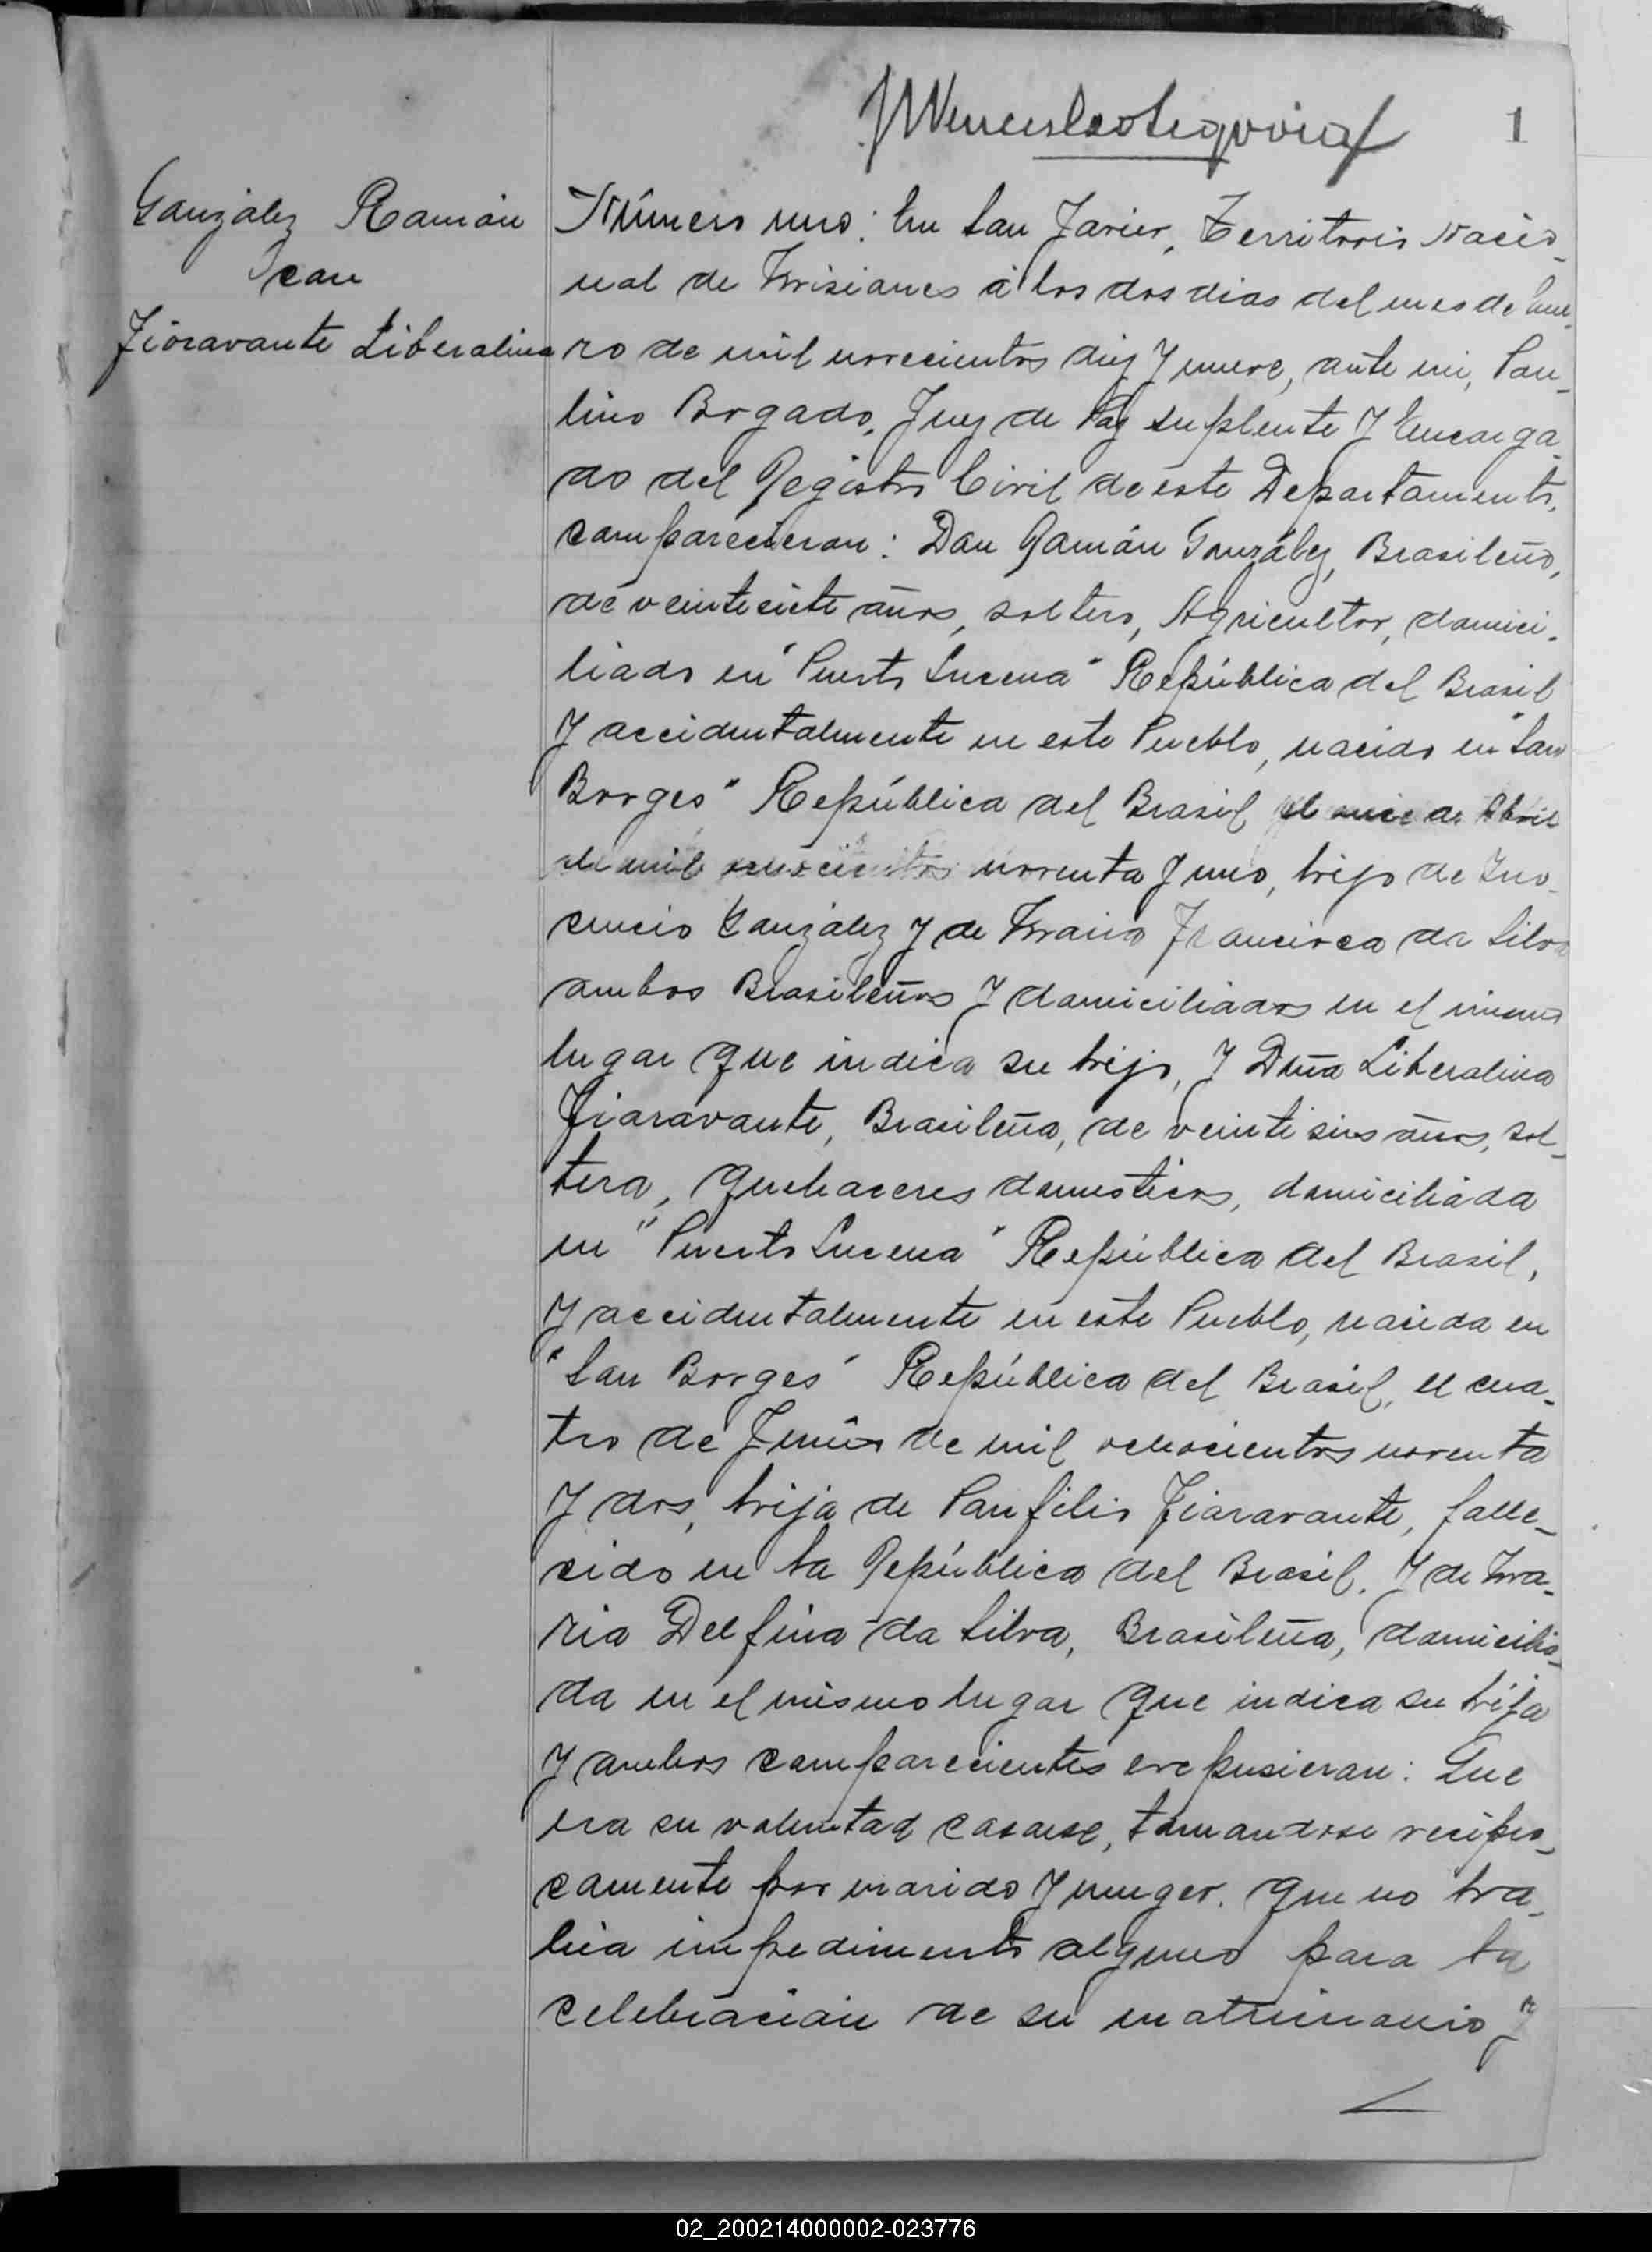 1
González Ramón
con
Fioravante Liberalina
Número uno: En San Javier, Territorio Nacio-
nal de Misiones á los dos dias del mes de Ene-
ro de mil novecientos diez y nueve, ante mi, Pau-
lino Bogado, Juez de Paz suplente y Encarga-
do del Registro Civil de este Departamento,
comparecieron: Don Ramón González, Brasileño,
de veintesiete años, soltero, Agricultor, domici-
liado en "Puerto Lucena" República del Brasil
y accidentalmente en este Pueblo, nacido en "San
Borges" República del Brasil el once de Abril
de mil ochocientos noventa y uno, hijo de Ino-
cencio González y de Maria Francisca da Silva
ambos Brasileños y domiciliados en el mismo
lugar que indica su hijo, y Doña Liberalina
Fioravante, Brasileña, de veinte seis años, sol-
tera, quehaceres domesticos, domiciliada
en "Puerto Lucena" República del Brasil,
y accidentalmente en este Pueblo, nacida en
"San Borges" República del Brasil, el cua-
tro de Junio de mil ochocientos noventa
y dos, hija de Panfilio Fioravante, falle-
cido en la República del Brasil, y de Ma-
ria Delfina da Silva, Brasileña, domicilia-
da en el mismo lugar que indica su hija
y ambos comparecientes expusieron: Que
era su voluntad casarse, tomandose recipro-
camente por marido y muger. que no ha-
bia impedimento alguno para la
celebración de su matrimonio y
02_200214000002-023776